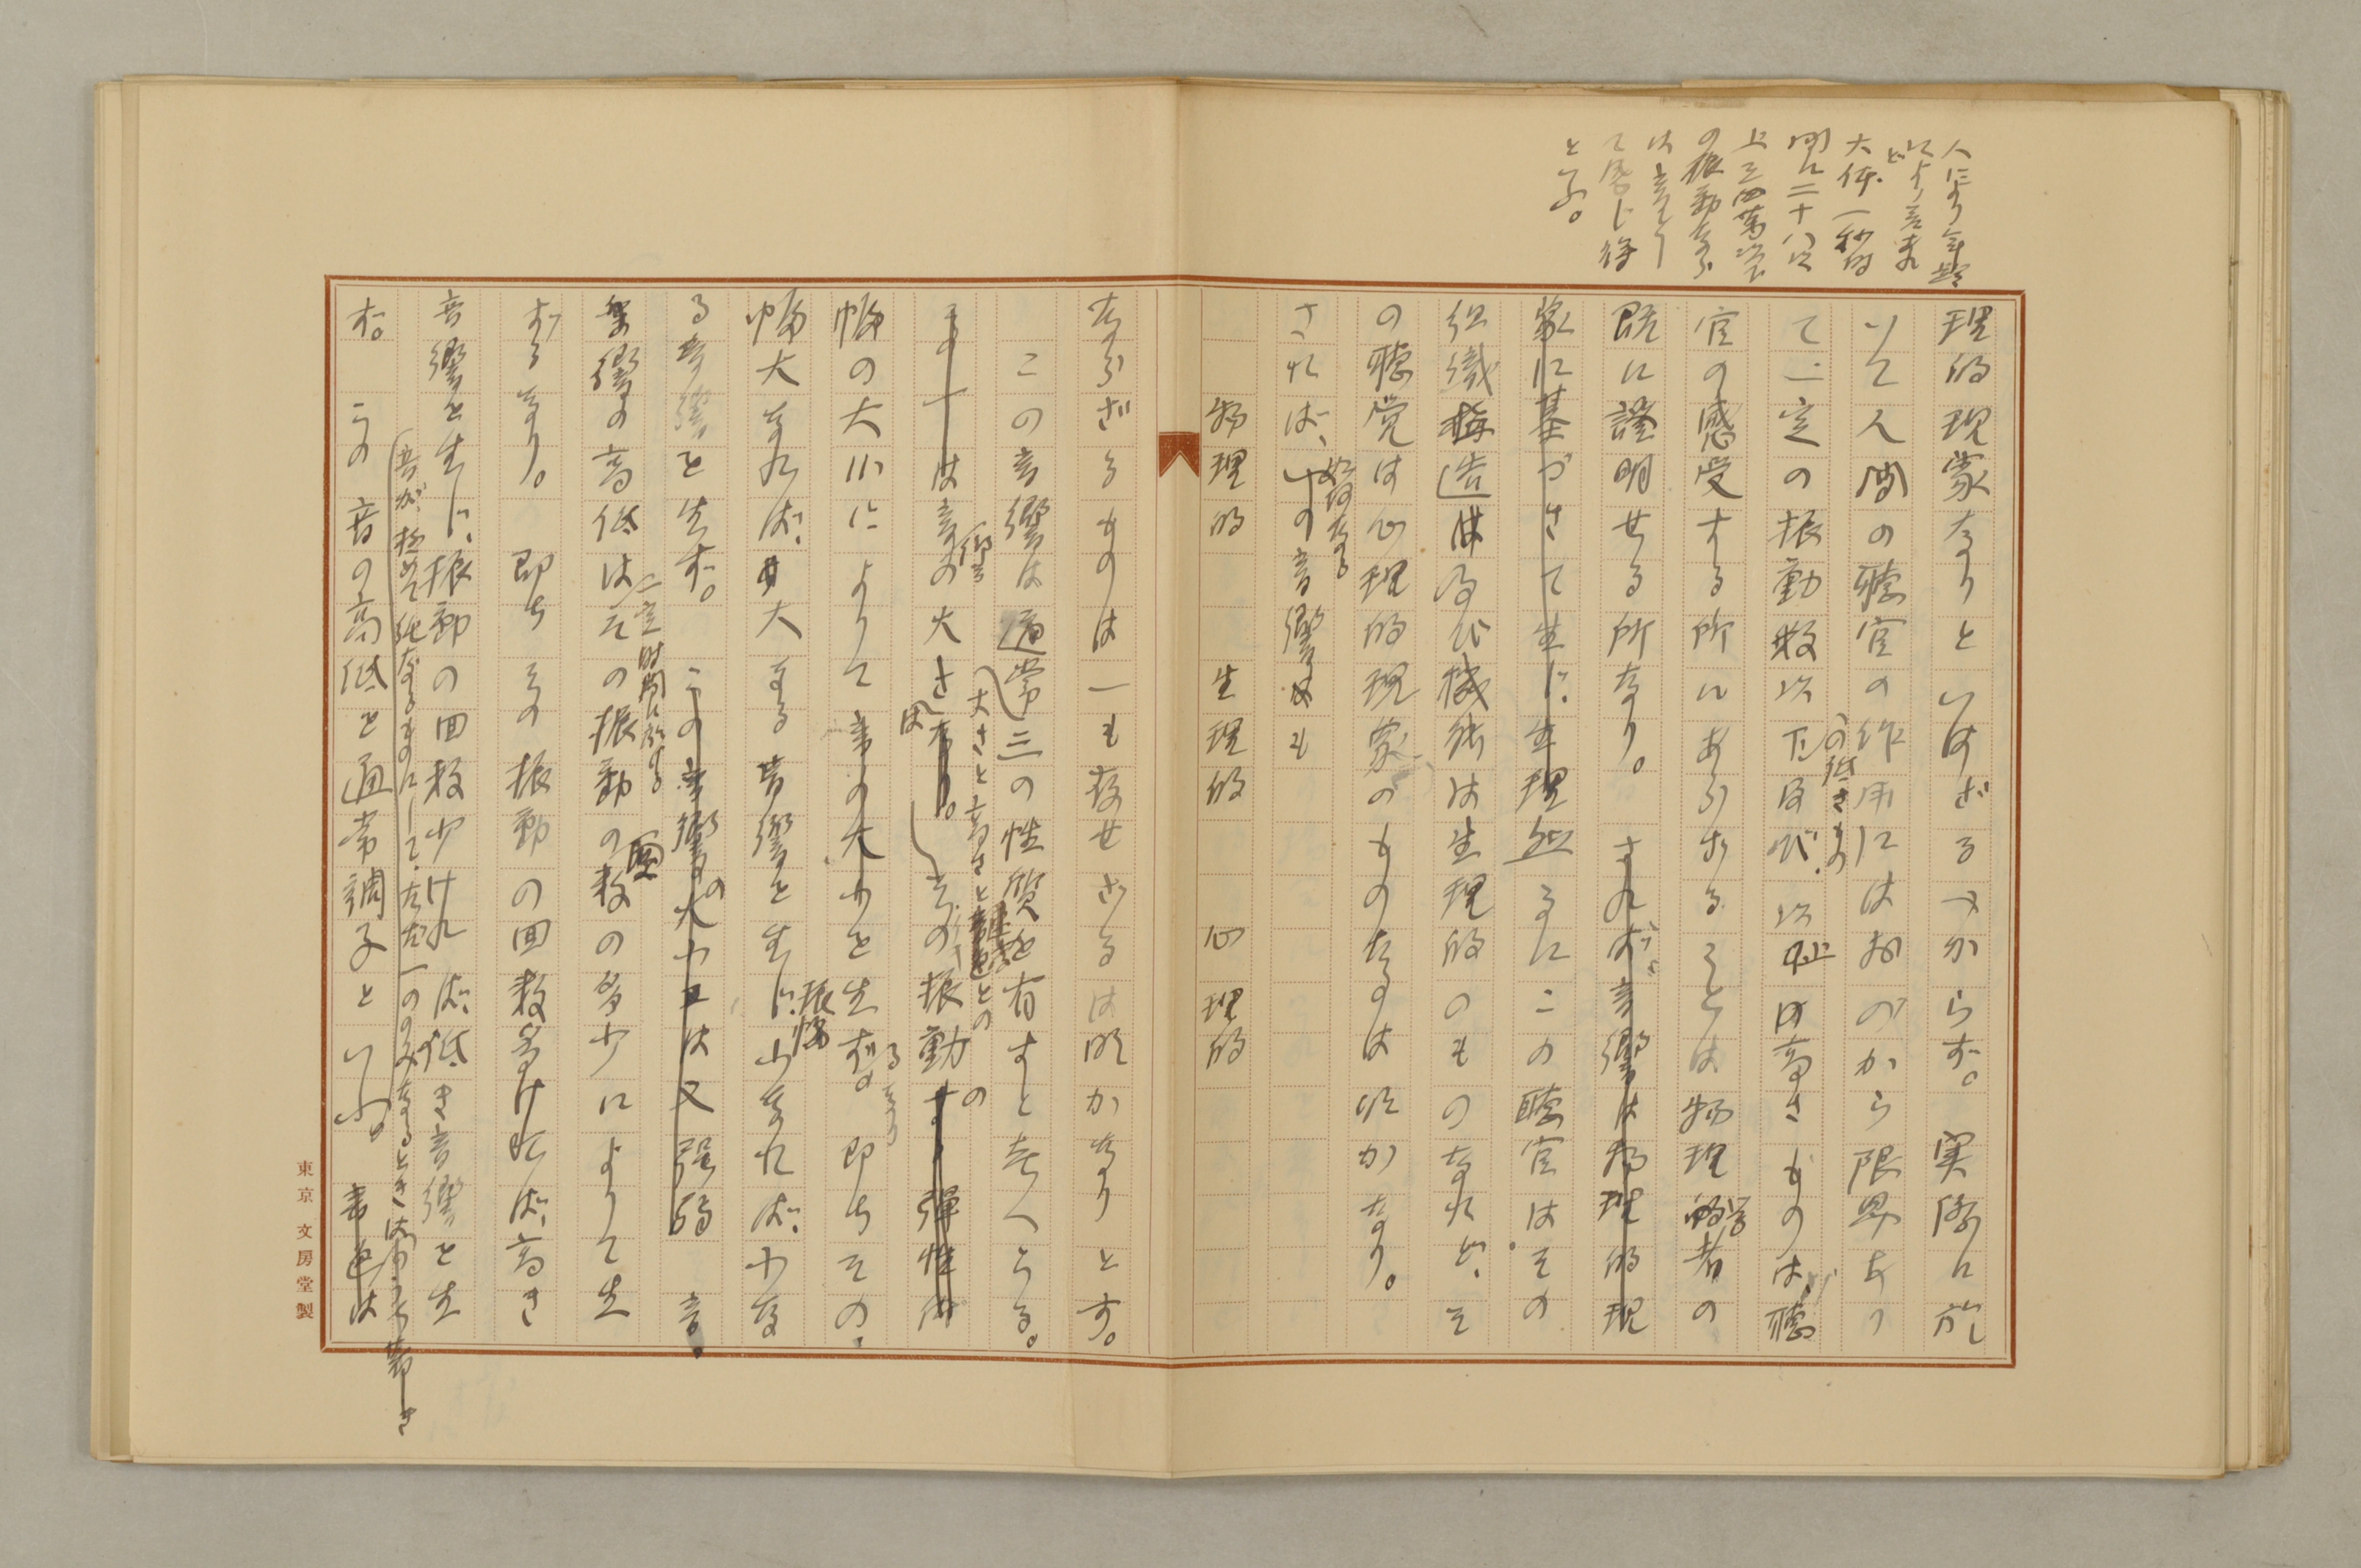 人により年齢
により差あれ
ど
大体一秒時
間に二十八以
上三四萬以下
の振動ならで
は音として
て感じ得
と云ふ。
理的現象なりといはざるべからず。実際に於
いて人間の聴官の作用にはおのづから限界あり
の低きもの
て一定の振動数以下及び以上の高きものは、聴
官の感受する所にあらざることは物理学者の
既に證明せる所なり。されば音響は物理的現
象に基づきて生じ、生理然るにこの聴官はその
組織構造及び機能は生理的のものなれど、そ
の聴覚は心理的現象のものなるは明かなり。
如何なる
されば、一の音響も
物理的 生理的 心理的
ならざるものは一も存せざるは明かなりとす。
この音響は通常三の性質を有すと考へらる。
大さと高さと音色との
その一は音響の大さなり。その振動の弾性体
幅の大小によりて音の大小を生ずるなり。即ちその
振幅
幅大なれば、大なる音響を生じ、小なれば、小な
る音響を生ず。この音響の大小又は強弱 音。
一定時間に於ける
音響の高低はその振動の回数の多少によりて生
ずるなり。即ちその振動の回数多ければ、高き
音響を生じ、振動の回数少ければ、低き音響を生
音が極めて純なるものにして、ただ一のみなるときは
ず。この音の高低を通常調子といふ。音色は
東京 文房堂製